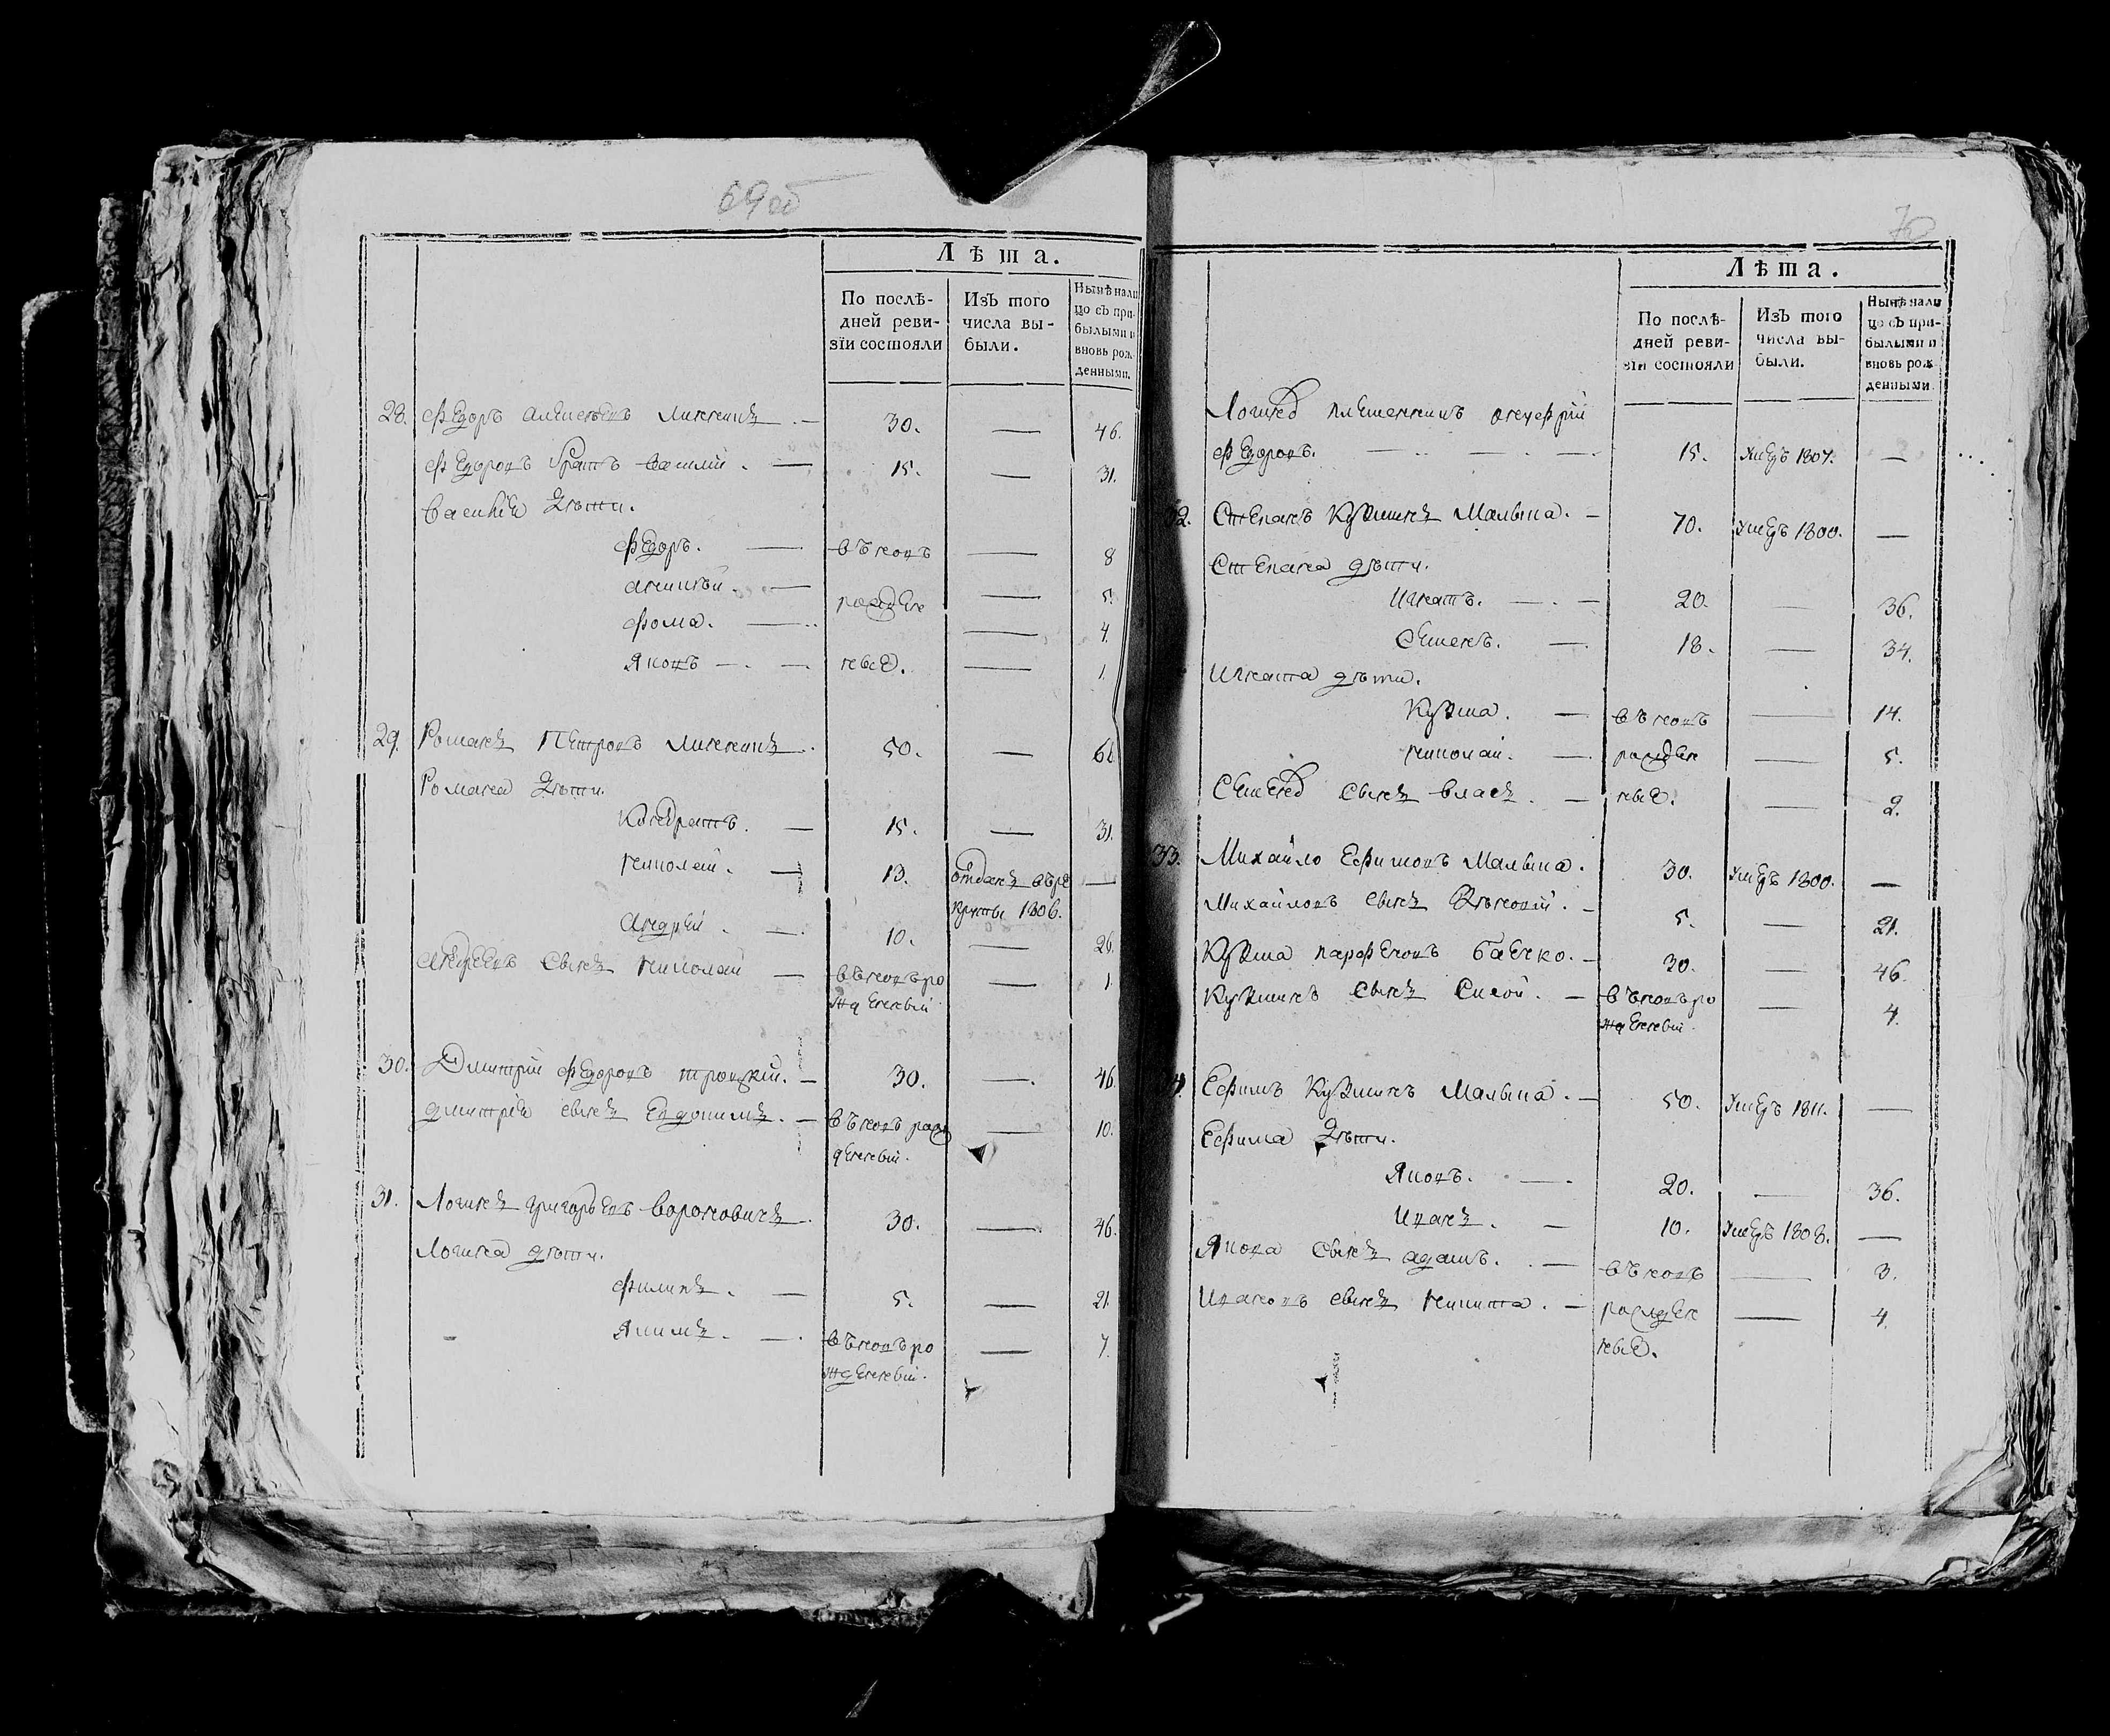 69об
Лѣта.
По послѣ-
дней реви-
зїи состояли
Изъ того
числа вы-
были.
Нынѣ нали
цо съ при-
былыми и
вновь рож-
денными.
28. Федоръ Алексѣевъ 30. — 46.
Федоровъ братъ Василий. — 15. — 31.
Василия дѣти.
Федоръ. — вѣновъ — 8
Алексѣй. — рожден — 5.
Фома. — — 4.
Яковъ — ные. — 1.
29. Романъ Петровъ 50. —
Романа дѣти.
Кондратъ. — 15. — 31.
Николай. — 13. отданъ въ ре —
круты 1806.
Андрѣй. — 10. — 26.
Андрѣевъ сынъ Николай — вѣновъ ро — 1.
жденный.
30. Дмитрий Федоровъ Троцкий. — 30. — 46.
Дмитрия сынъ Евдокимъ. — вѣновъ рож — 10.
денный.
31. Логинъ Григорьевъ Воронович. 30. — 46.
Логина дѣти.
Филипъ. — 5. — 21.
Якимъ. — вѣновъ ро — 7.
жденный.
70
Лѣта.
По послѣ-
дней реви-
зїи состояли
Изъ того
числа вы-
были.
Нынѣ нали
цо съ при-
былыми и
вновь рож-
денными.
Логина племенникъ Онуфрий
Федоровъ. — 15. Умеръ 1807. —
32. Степанъ Кузминъ Малыша. — 70. Умеръ 1800. —
Степана дѣти.
Игнатъ. — 20. — 36.
Семенъ. — 18. — 34.
Игната дѣти.
Кузма. — вѣновъ — 14.
Николай. — рожден — 5.
Семена сынъ Власъ. — ные. — 2.
33. Михайло Ефимовъ Малыша. 30. Умеръ 1800. —
Михайловъ сынъ 5. — 21.
Кузма Парфеновъ 30. — 46.
Кузминъ сынъ Сысой. — вѣновъ ро — 4.
жденный.
34. Ефимъ Кузминъ Малыша. — 50. Умеръ 1811. —
Ефима дѣти.
Яковъ. — 20. — 36.
Иванъ. — 10. Умеръ 1808. —
Якова сынъ Адамъ. — вѣновъ — 3.
Ивановъ сынъ Никита. — рожден — 4.
ные.